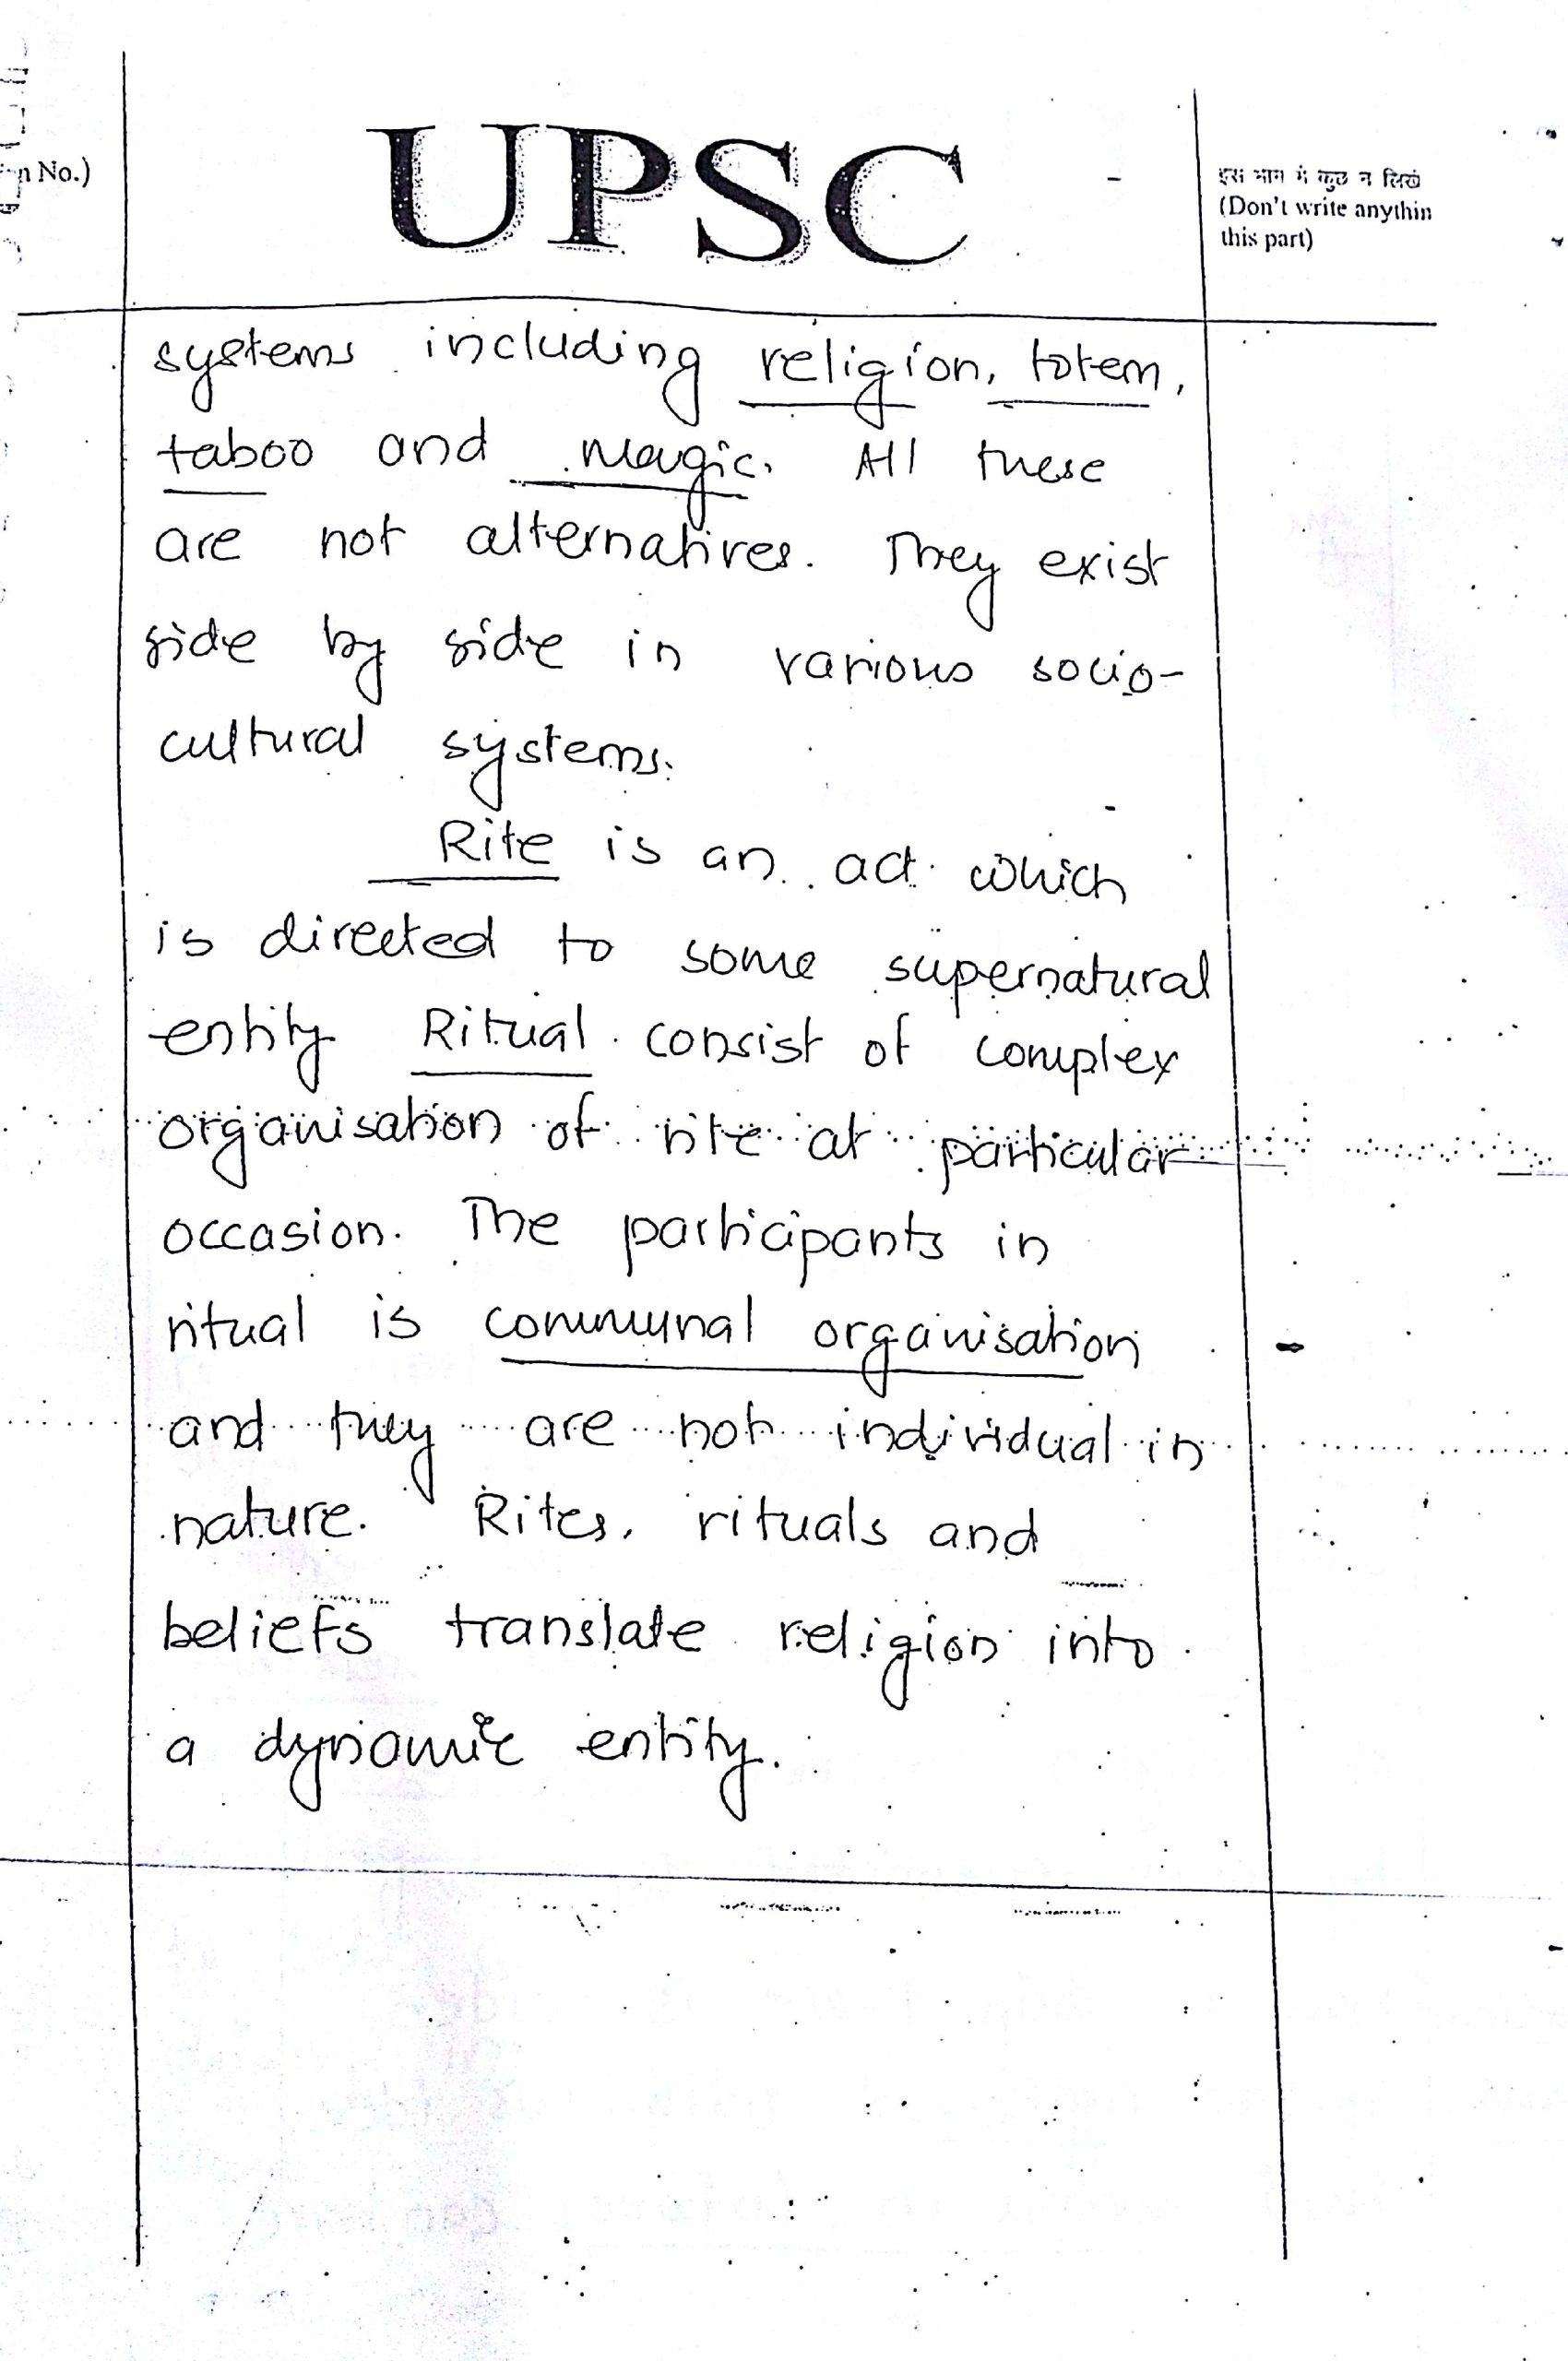 UPSC
n No.)
इस भाग में कुछ न लिखें
(Don't write anythin
this part)
systems including religion, totem,
taboo and magic. All these
are not alternatives. They exist
side by side in various socio-
cultural systems.
Rite is an act which
is directed to some supernatural
entity Ritual consist of complex
organisation of rite at particular
occasion. The participants in
ritual is communal organisation
and they are not individual in
nature. Rites, rituals and
beliefs translate religion into
a dynamic entity.